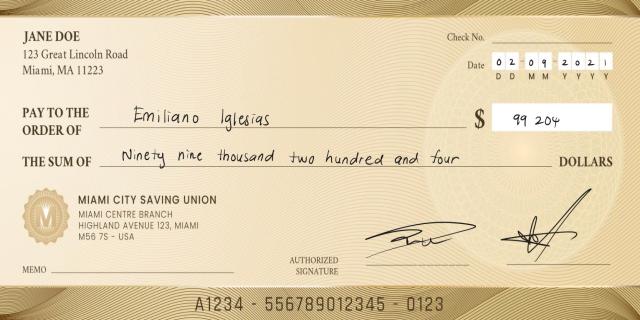 JANE DOE
123 Great Lincoln Road
Miami, MA 11223
Check No.
Date 02-09-2021
D D M M Y Y Y Y
PAY TO THE ORDER OF Emiliano Iglesias $ 99 204
THE SUM OF Ninety nine thousand two hundred and four DOLLARS
M
MIAMI CITY SAVING UNION
MIAMI CENTRE BRANCH
HIGHLAND AVENUE 123, MIAMI
M56 7S - USA
MEMO
AUTHORIZED SIGNATURE
A1234 - 556789012345 - 0123